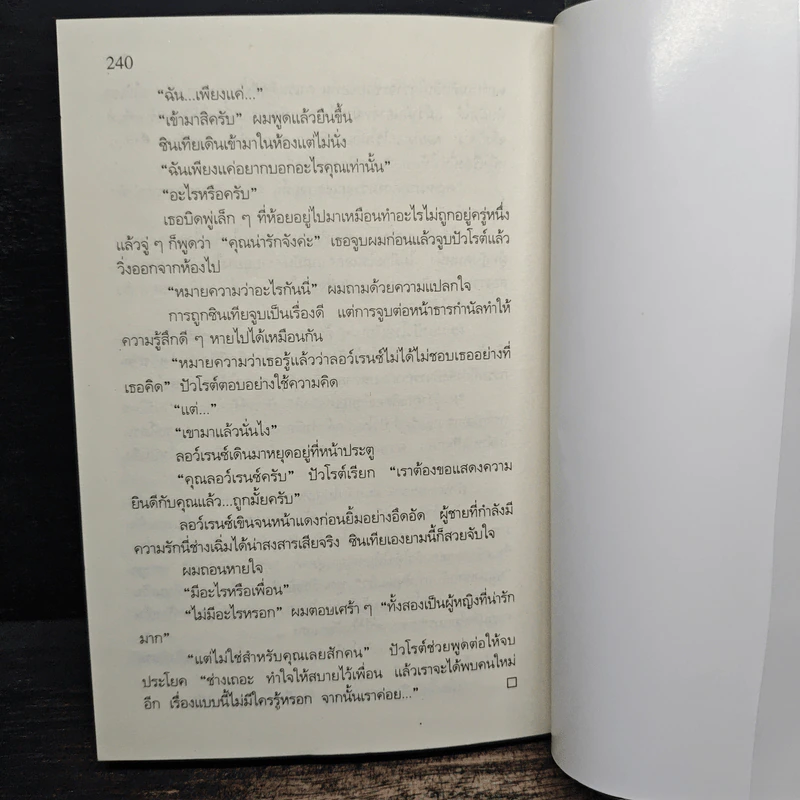 240
“ฉัน...เพียงแค่...”
“เข้ามาสิครับ” ผมพูดแล้วยืนขึ้น
ซินเทียเดินเข้ามาในห้องแต่ไม่นั่ง
“ฉันเพียงแค่อยากบอกอะไรคุณเท่านั้น”
“อะไรหรือครับ”
เธอบิดพู่เล็ก ๆ ที่ห้อยอยู่ไปมาเหมือนทำอะไรไม่ถูกอยู่ครู่หนึ่ง
แล้วจู่ ๆ ก็พูดว่า “คุณน่ารักจังค่ะ” เธอจูบผมก่อนแล้วจูบปัวโรต์แล้ว
วิ่งออกจากห้องไป
“หมายความว่าอะไรกันนี่” ผมถามด้วยความแปลกใจ
การถูกซินเทียจูบเป็นเรื่องดี แต่การจูบต่อหน้าธารกำนัลทำให้
ความรู้สึกดี ๆ หายไปได้เหมือนกัน
“หมายความว่าเธอรู้แล้วว่าลอว์เรนซ์ไม่ได้ไม่ชอบเธออย่างที่
เธอคิด” ปัวโรต์ตอบอย่างใช้ความคิด
“แต่...”
“เขามาแล้วนั่นไง”
ลอว์เรนซ์เดินมาหยุดอยู่ที่หน้าประตู
“คุณลอว์เรนซ์ครับ” ปัวโรต์เรียก “เราต้องขอแสดงความ
ยินดีกับคุณแล้ว...ถูกมั้ยครับ”
ลอว์เรนซ์เขินจนหน้าแดงก่อนยิ้มอย่างอึดอัด ผู้ชายที่กำลังมี
ความรักนี่ช่างเฉิ่มได้น่าสงสารเสียจริง ซินเทียเองยามนี้ก็สวยจับใจ
ผมถอนหายใจ
“มีอะไรหรือเพื่อน”
“ไม่มีอะไรหรอก” ผมตอบเศร้า ๆ “ทั้งสองเป็นผู้หญิงที่น่ารัก
มาก”
“แต่ไม่ใช่สำหรับคุณเลยสักคน” ปัวโรต์ช่วยพูดต่อให้จบ
ประโยค “ช่างเถอะ ทำใจให้สบายไว้เพื่อน แล้วเราจะได้พบคนใหม่
อีก เรื่องแบบนี้ไม่มีใครรู้หรอก จากนั้นเราค่อย...” □